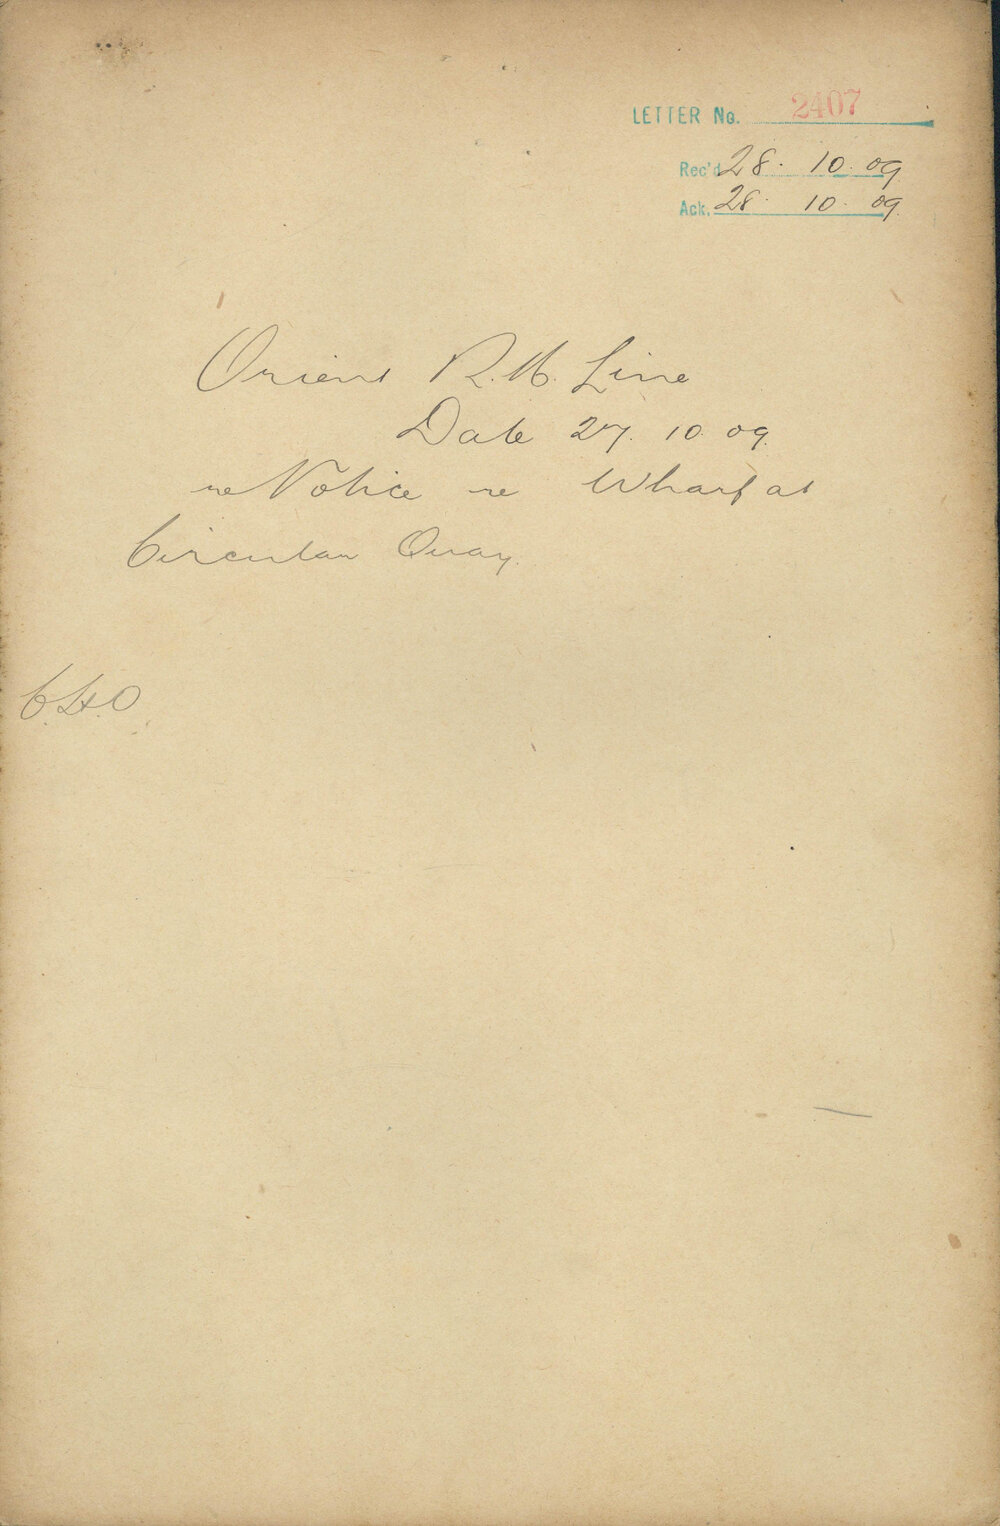 LETTER No. 2407
Rec'd 28. 10. 09
Ack. 28. 10. 09.
Orient R.M. Line
Date 27. 10. 09.
re Notice re Wharf at
Circular Quay.
C.H.O.